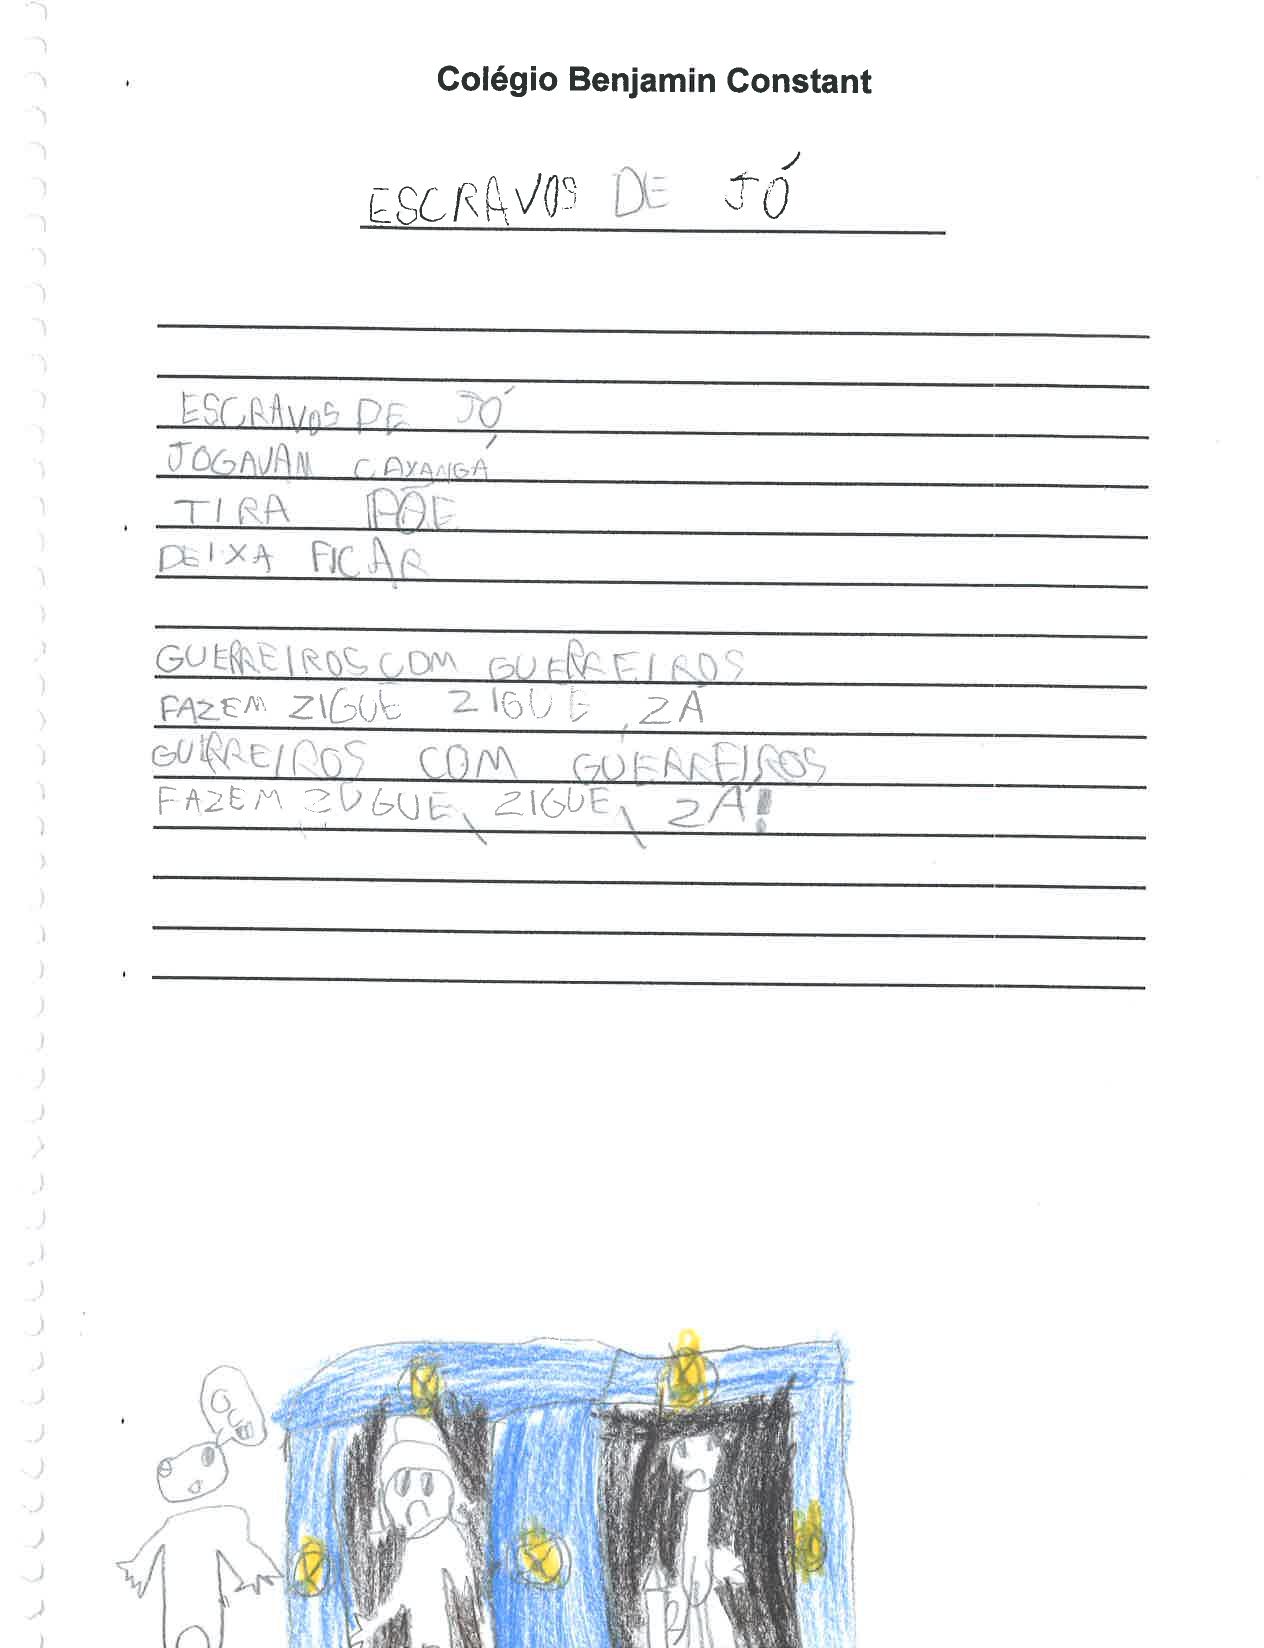 Colégio Benjamin Constant
ESCRAVOS DE JÓ
ESCRAVOS DE JÓ
JOGAVAM CAXANGÁ
TIRA PÕE
DEIXA FICAR
GUERREIROS COM GUERREIROS
FAZEM ZIGUE ZIGUE, ZÁ
GUERREIROS COM GUERREIROS
FAZEM ZUGUE, ZIGUE, ZÁ!